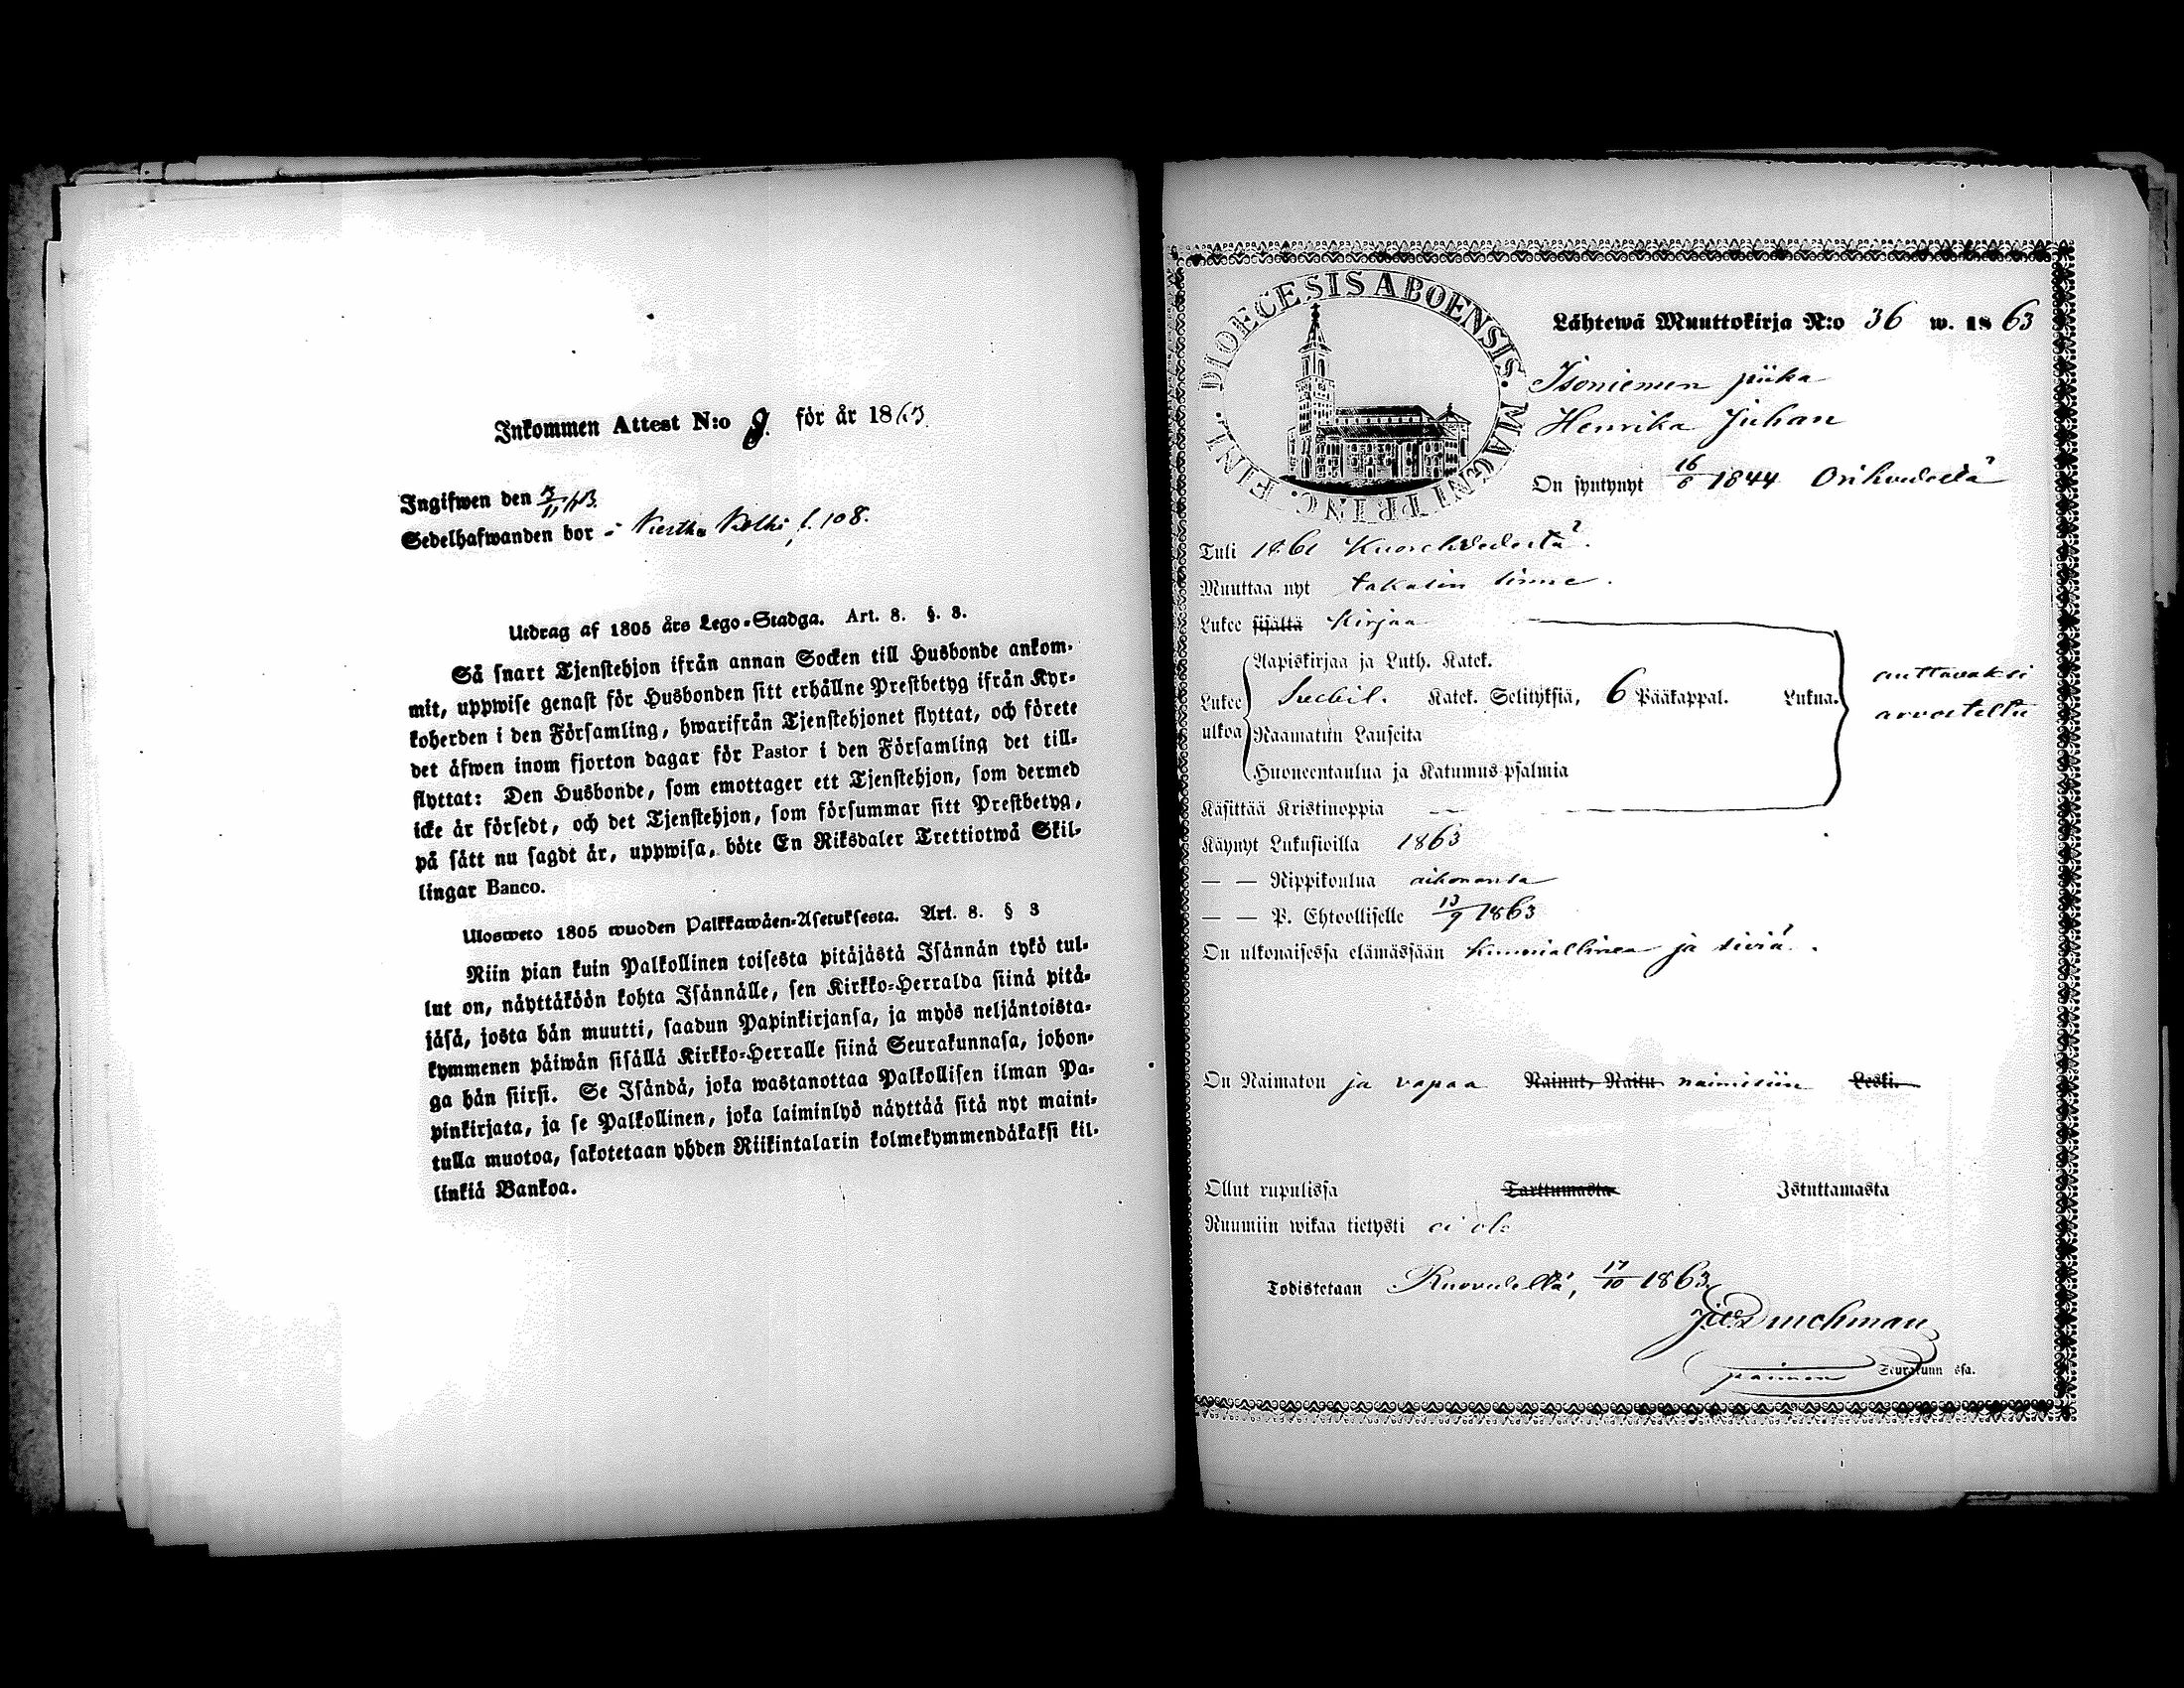 Inkommen Attest N:o 9. för år 1863.
Ingifwen den 3/11 63.
Sedelhafwanden bor i Kertte Kolhi, f. 108.
Utdrag af 1805 års Lego-Stadga. Art. 8. §. 3.
Så snart Tjenstehjon ifrån annan Socken till Husbonde ankom-
mit, uppwise genast för Husbonden sitt erhållne Prestbetyg ifrån Kyr-
koherden i den Församling, hwarifrån Tjenstehjonet flyttat, och förete
det äfwen inom fjorton dagar för Pastor i den Församling det till-
flyttat: Den Husbonde, som emottager ett Tjenstehjon, som dermed
icke är försedt, och det Tjenstehjon, som försummar sitt Prestbetyg,
på sätt nu sagdt är, uppwisa, böte En Riksdaler Trettiotwå Skil-
lingar Banco.
Ulosweto 1805 wuoden Palkkawäen-Asetuksesta. Art. 8. § 3
Niin pian kuin Palkollinen toisesta pitäjästä Isännän tykö tul-
lut on, näyttäköön kohta Isännälle, sen Kirkko-Herralda siinä pitä-
jäsä, josta hän muutti, saadun Papinkirjansa, ja myös neljäntoista-
kymmenen päiwän sisällä Kirkko-Herralle siinä Seurakunnasa, johon-
ga hän siirsi. Se Isändä, joka wastanottaa Palkollisen ilman Pa-
pinkirjata, ja se Palkollinen, joka laiminlyö näyttää sitä nyt maini-
tulla muotoa, sakotetaan yhden Riikintalarin kolmekymmendäkaksi kil-
linkiä Bankoa.
DIOECESIS ABOENSIS. MAGNI PRINC. FINL.
Lähtewä Muuttokirja N:o 36 w. 1863
Isoniemen piika
Henrika Juhan
On syntynyt 16/6 1844 Orihvedellä
Tuli 1861 Kuorehvedestä.
Muuttaa nyt takasin sinne.
Lukee sisältä Kirjaa
Aapiskirjaa ja Luth. Katek.
Lukee ulkoa Svebil. Katek. Selityksiä, 6 Pääkappal. Lukua.
Raamatun Lauseita
Huoneentaulua ja Katumus-psalmia
auttavaksi
arvosteltu
Käsittää Kristinoppia
Käynyt Lukusioilla 1863
— — Rippikoulua aikonansa
— — P. Ehtoolliselle 13/9 1863
On ulkonaisessa elämässään kunniallinen ja siviä.
On Naimaton ja vapaa Nainut, Naitu naimisiin Leski.
Ollut rupulissa Tarttumasta Istuttamasta
Ruumiin wikaa tietysti ei ole
Todistetaan Ruovedellä, 17/10 1863
Seurakunn ssa.